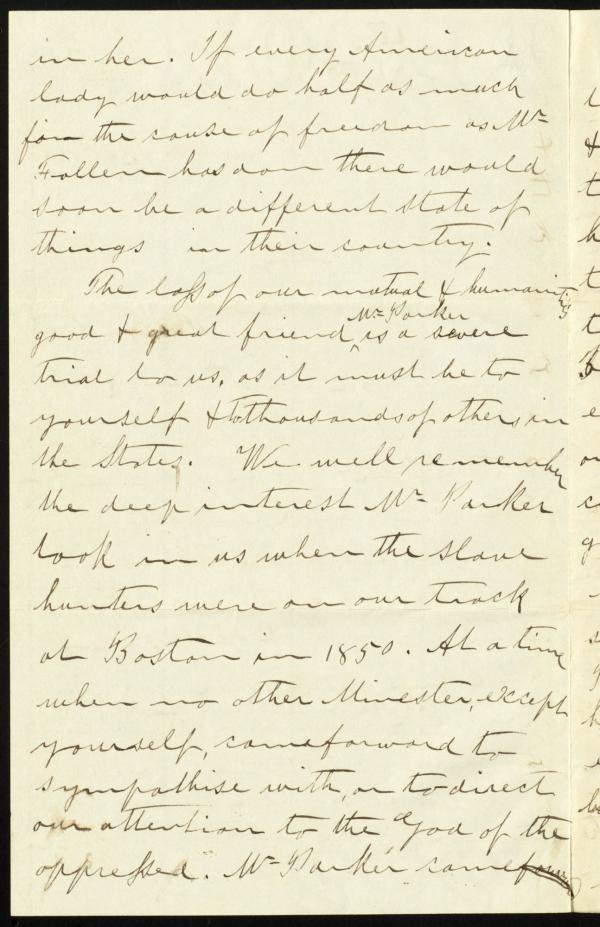 in her. If every American
lady would do half as much
for the cause of freedom as Mrs
Follen has don there would
soon be a different state of
things in their country.
The loss of our mutual & humanity's
good & great friend, Mr Parker is a severe
trial to us, as it must be to
yourself & to thousands of others in
the States. We well remember
the deep interest Mr Parker
took in us when the slave
hunters were on our track
at Boston in 1850. At a time
when no other Minester, except
yourself, came forward to
sympathise with, or to direct
our attention to the God of the
oppressed. Mr Parker came